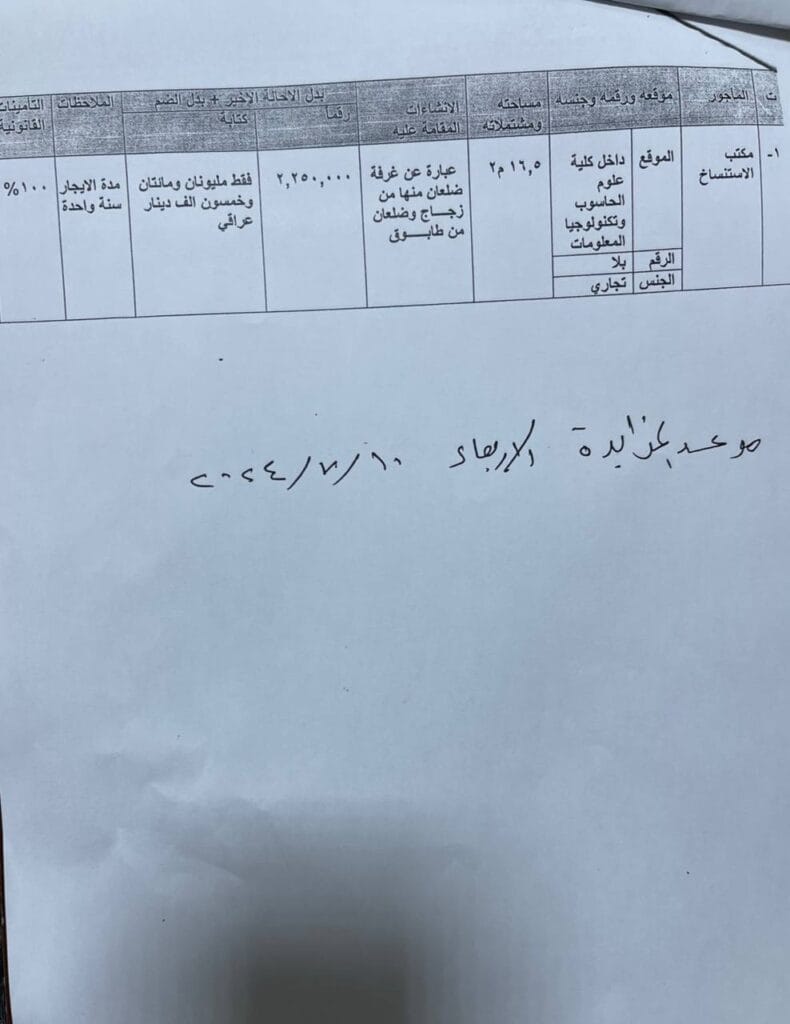 ت
المأجور
موقعه ورقمه وجنسه
مساحته ومشتملاته
الانشاءات المقامة عليه
بدل الاحالة الاخير + بدل الضم
رقما
كتابة
الملاحظات
التأمينات القانونية
١-
مكتب
الاستنساخ
الموقع
داخل كلية
علوم
الحاسوب
وتكنولوجيا
المعلومات
الرقم
بلا
الجنس
تجاري
١٦,٥ م٢
عبارة عن غرفة
ضلعان منها من
زجـــاج وضلعان
من طابـــــوق
٢,٢٥٠,٠٠٠
فقط مليونان ومائتان
وخمسون الف دينار
عراقي
مدة الايجار
سنة واحدة
١٠٠%
موعد المزايدة الاربعاء ١٠/٧/٢٠٢٤